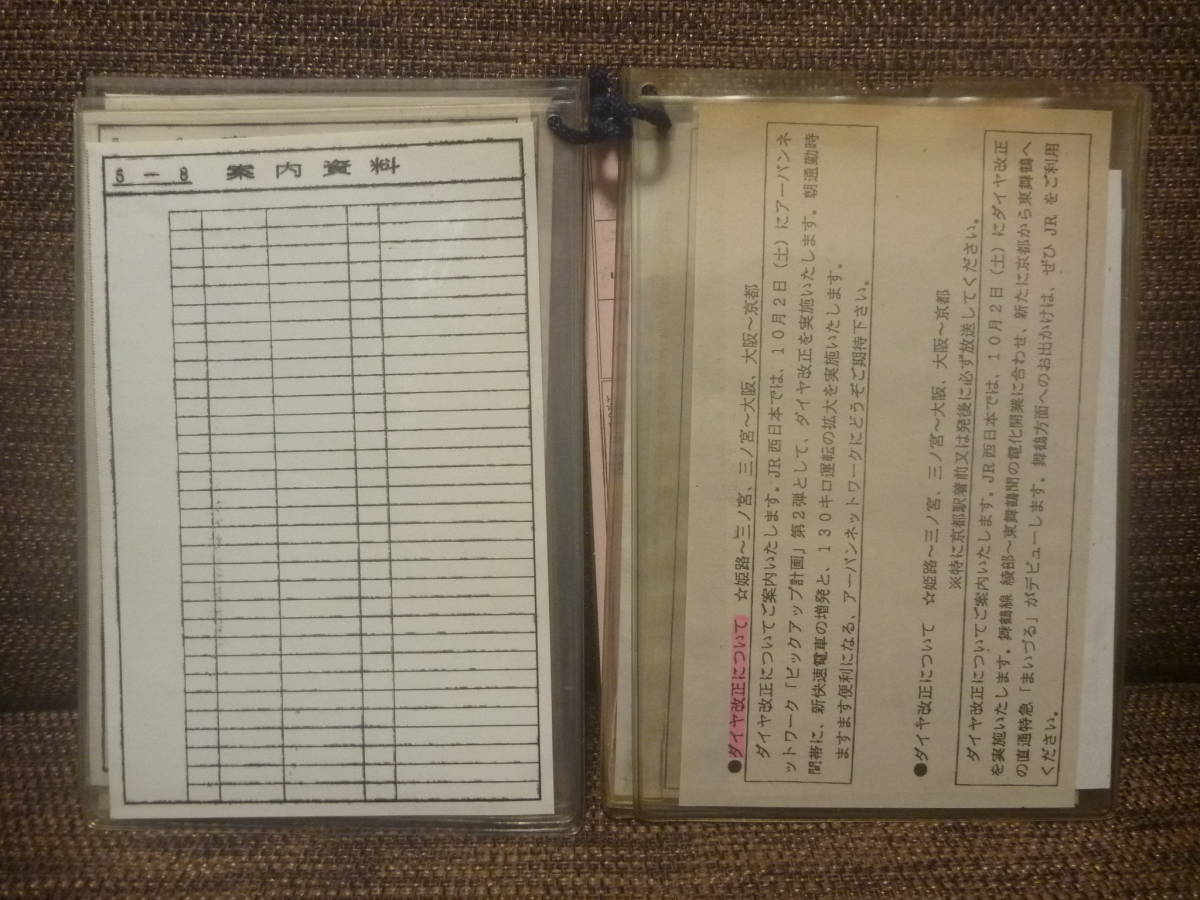 5－8 案内資料
●ダイヤ改正について ☆姫路～三ノ宮、三ノ宮～大阪、大阪～京都
ダイヤ改正についてご案内いたします。JR西日本では、10月2日（土）にアーバンネ
ットワーク「ピックアップ計画」第2弾として、ダイヤ改正を実施いたします。朝通勤時
間帯に、新快速電車の増発と、130キロ運転の拡大を実施いたします。
ますます便利になる、アーバンネットワークにどうぞご期待下さい。
●ダイヤ改正について ☆姫路～三ノ宮、三ノ宮～大阪、大阪～京都
※特に京都駅着前又は発後に必ず放送してください。
ダイヤ改正についてご案内いたします。JR西日本では、10月2日（土）にダイヤ改正
を実施いたします。舞鶴線 綾部～東舞鶴間の電化開業に合わせ、新たに京都から東舞鶴へ
の直通特急「まいづる」がデビューします。舞鶴方面へのお出かけは、ぜひJRをご利用
ください。